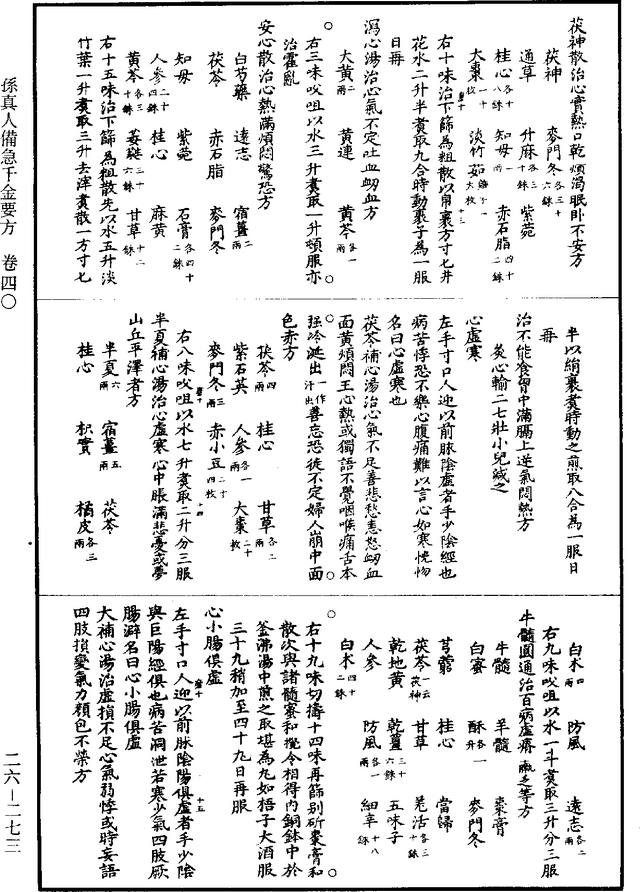 茯神散治心實熱口乾煩渴眠卧不安方
茯神 麥門冬各三十六銖
通草 升麻各三十銖 紫菀
桂心各十八銖 知母一兩 赤石脂四十二銖
大棗二十枚 淡竹茹雞子大一枚
右十味治下篩為粗散以帛裹方寸七井
花水二升半煑取九合時動裹子為一服
日再
瀉心湯治心氣不定吐血衂血方
大黃二兩 黃連 黃芩各一兩
右三味㕮咀以水三升煑取一升頓服亦
治霍亂
安心散治心熱滿煩悶驚恐方
白芍藥 遠志 宿薑二兩
茯苓 赤石脂 麥門冬
知母 紫菀 石膏各四十二銖
人參二十四銖 桂心 麻黃
黃芩各三十銖 萎蕤三十六銖 甘草十二銖
右十五味治下篩為粗散先以水五升淡
竹葉一升煑取三升去滓煑散一方寸七
半以絹裹煑時動之煎取八合為一服日
再
治不能食胷中滿膈上逆氣悶熱方
灸心輸二七壯小兒減之
心虛寒
左手寸口人迎以前脉陰虛者手少陰經也
病苦悸恐不樂心腹痛難以言心如寒恍惚
名曰心虛寒也
茯苓補心湯治心氣不足善悲愁恚怒衂血
面黃煩悶五心熱或獨語不覺咽喉痛舌本
强冷涎出一作汗出善忘恐徒不定婦人崩中面
色赤方
茯苓四兩 桂心 甘草各二兩
紫石英 人參各一兩 大棗二十枚
麥門冬三兩 赤小豆二十四枚
右八味㕮咀以水七升煑取二升半分三服
半夏補心湯治心虛寒心中脹滿悲憂或夢
山丘平澤者方
半夏六兩 宿薑五兩 茯苓
桂心 枳實 橘皮各三兩
白术四兩 防風 遠志各二兩
右九味㕮咀以水一斗煑取三升分三服
牛髓圓通治百病虛瘠羸乏等方
牛髓 羊髓 棗膏
白蜜 酥各一升 麥門冬
芎藭 桂心 當歸
茯苓一云茯神 甘草 羌活各三十銖
乾地黃 乾薑各三十六銖 五味子
人參 防風各一兩 細辛十八銖
白术四十二銖
右十九味切擣十四味再篩別斫棗膏和
散次與諸髓蜜和攪令相得内銅鉢中於
釜沸湯中煎之取堪為丸如梧子大酒服
三十九稍加至四十九日再服
心小腸俱虛
左手寸口人迎以前脉陰陽俱虛者手少陰
與巨陽經俱也病苦洞泄若寒少氣四肢厥
腸澼名曰心小腸俱虛
大補心湯治虛損不足心氣弱悸或時妄語
四肢損變氣力顏色不榮方
孫真人備急千金要方 卷四〇
二六－二七三